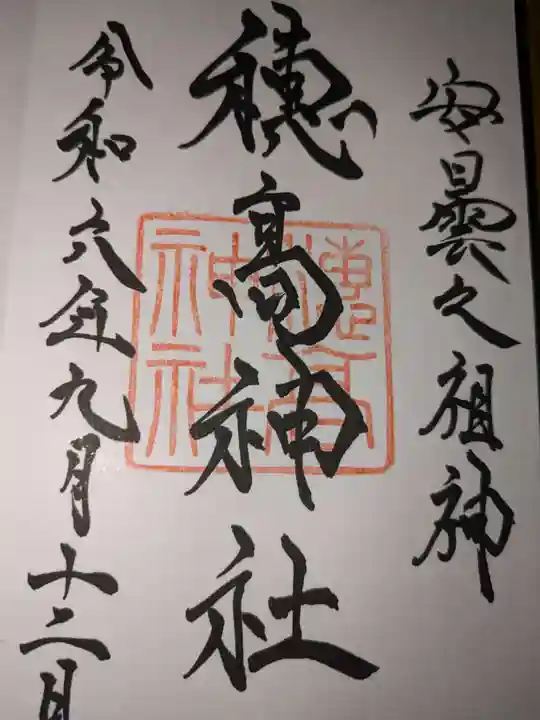 安曇之祖神
穂高神社
穂高神社
令和六年九月十二日